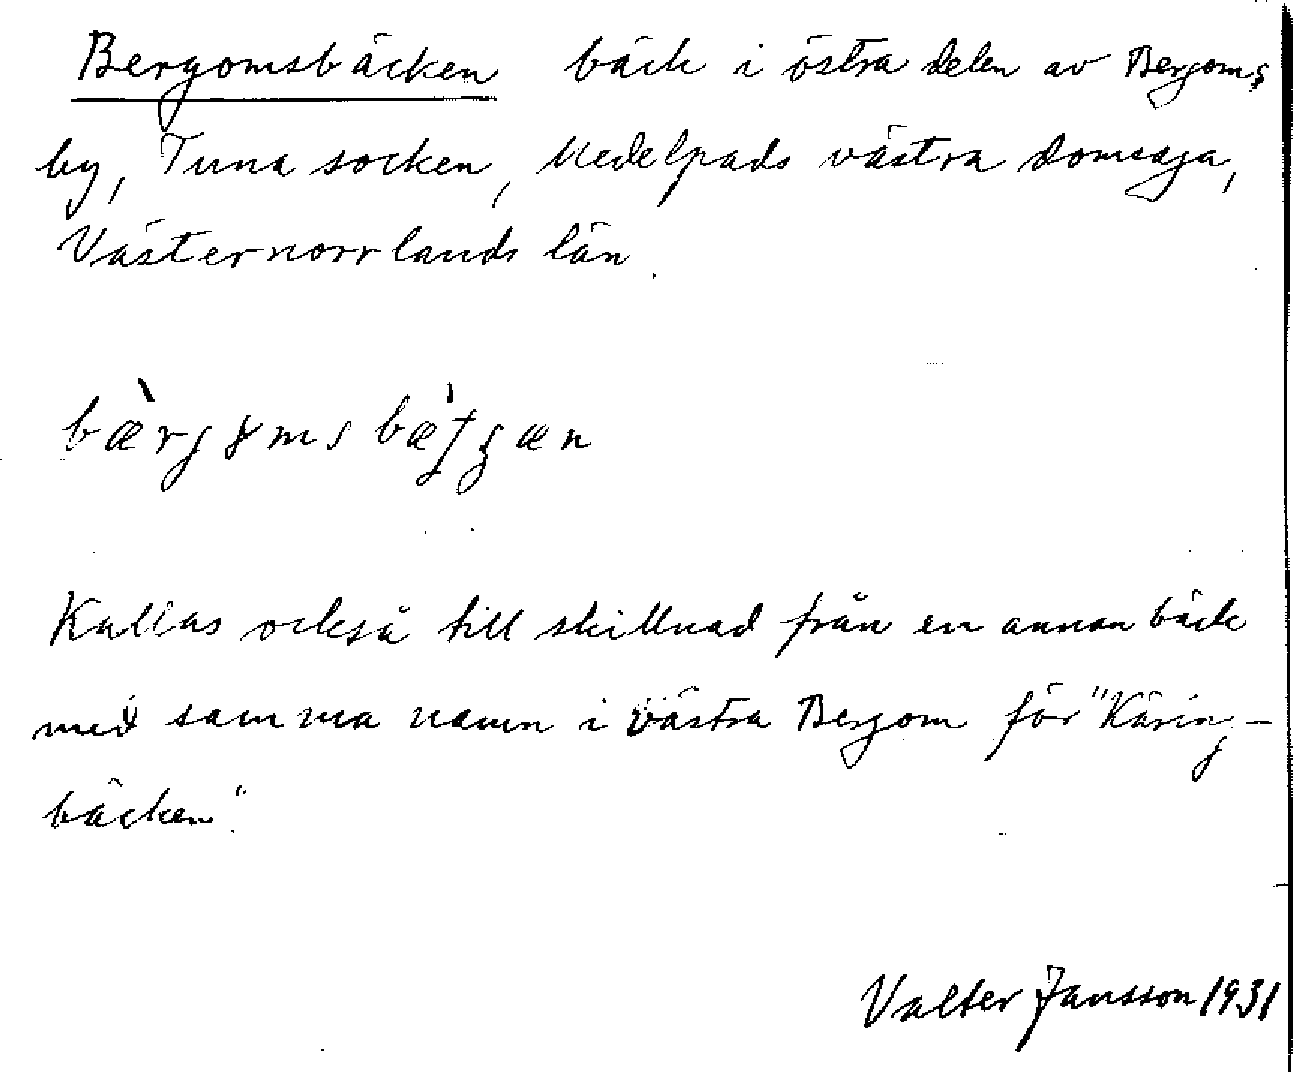 Bergomsbäcken bäck i östra delen av Bergoms
by, Tuna socken, Medelpads västra domsaga,
Västernorrlands län.
Kallas också till skillnad från en annan bäck
med samma namn i västra Bergom för "Käring-
bäcken".
Valter Jansson 1931